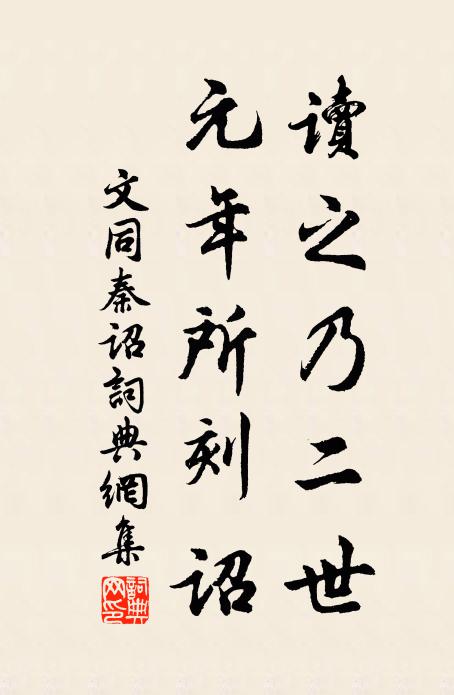 讀之乃二世
元年所刻詔
文同秦詔詞典網集
詞典
网印